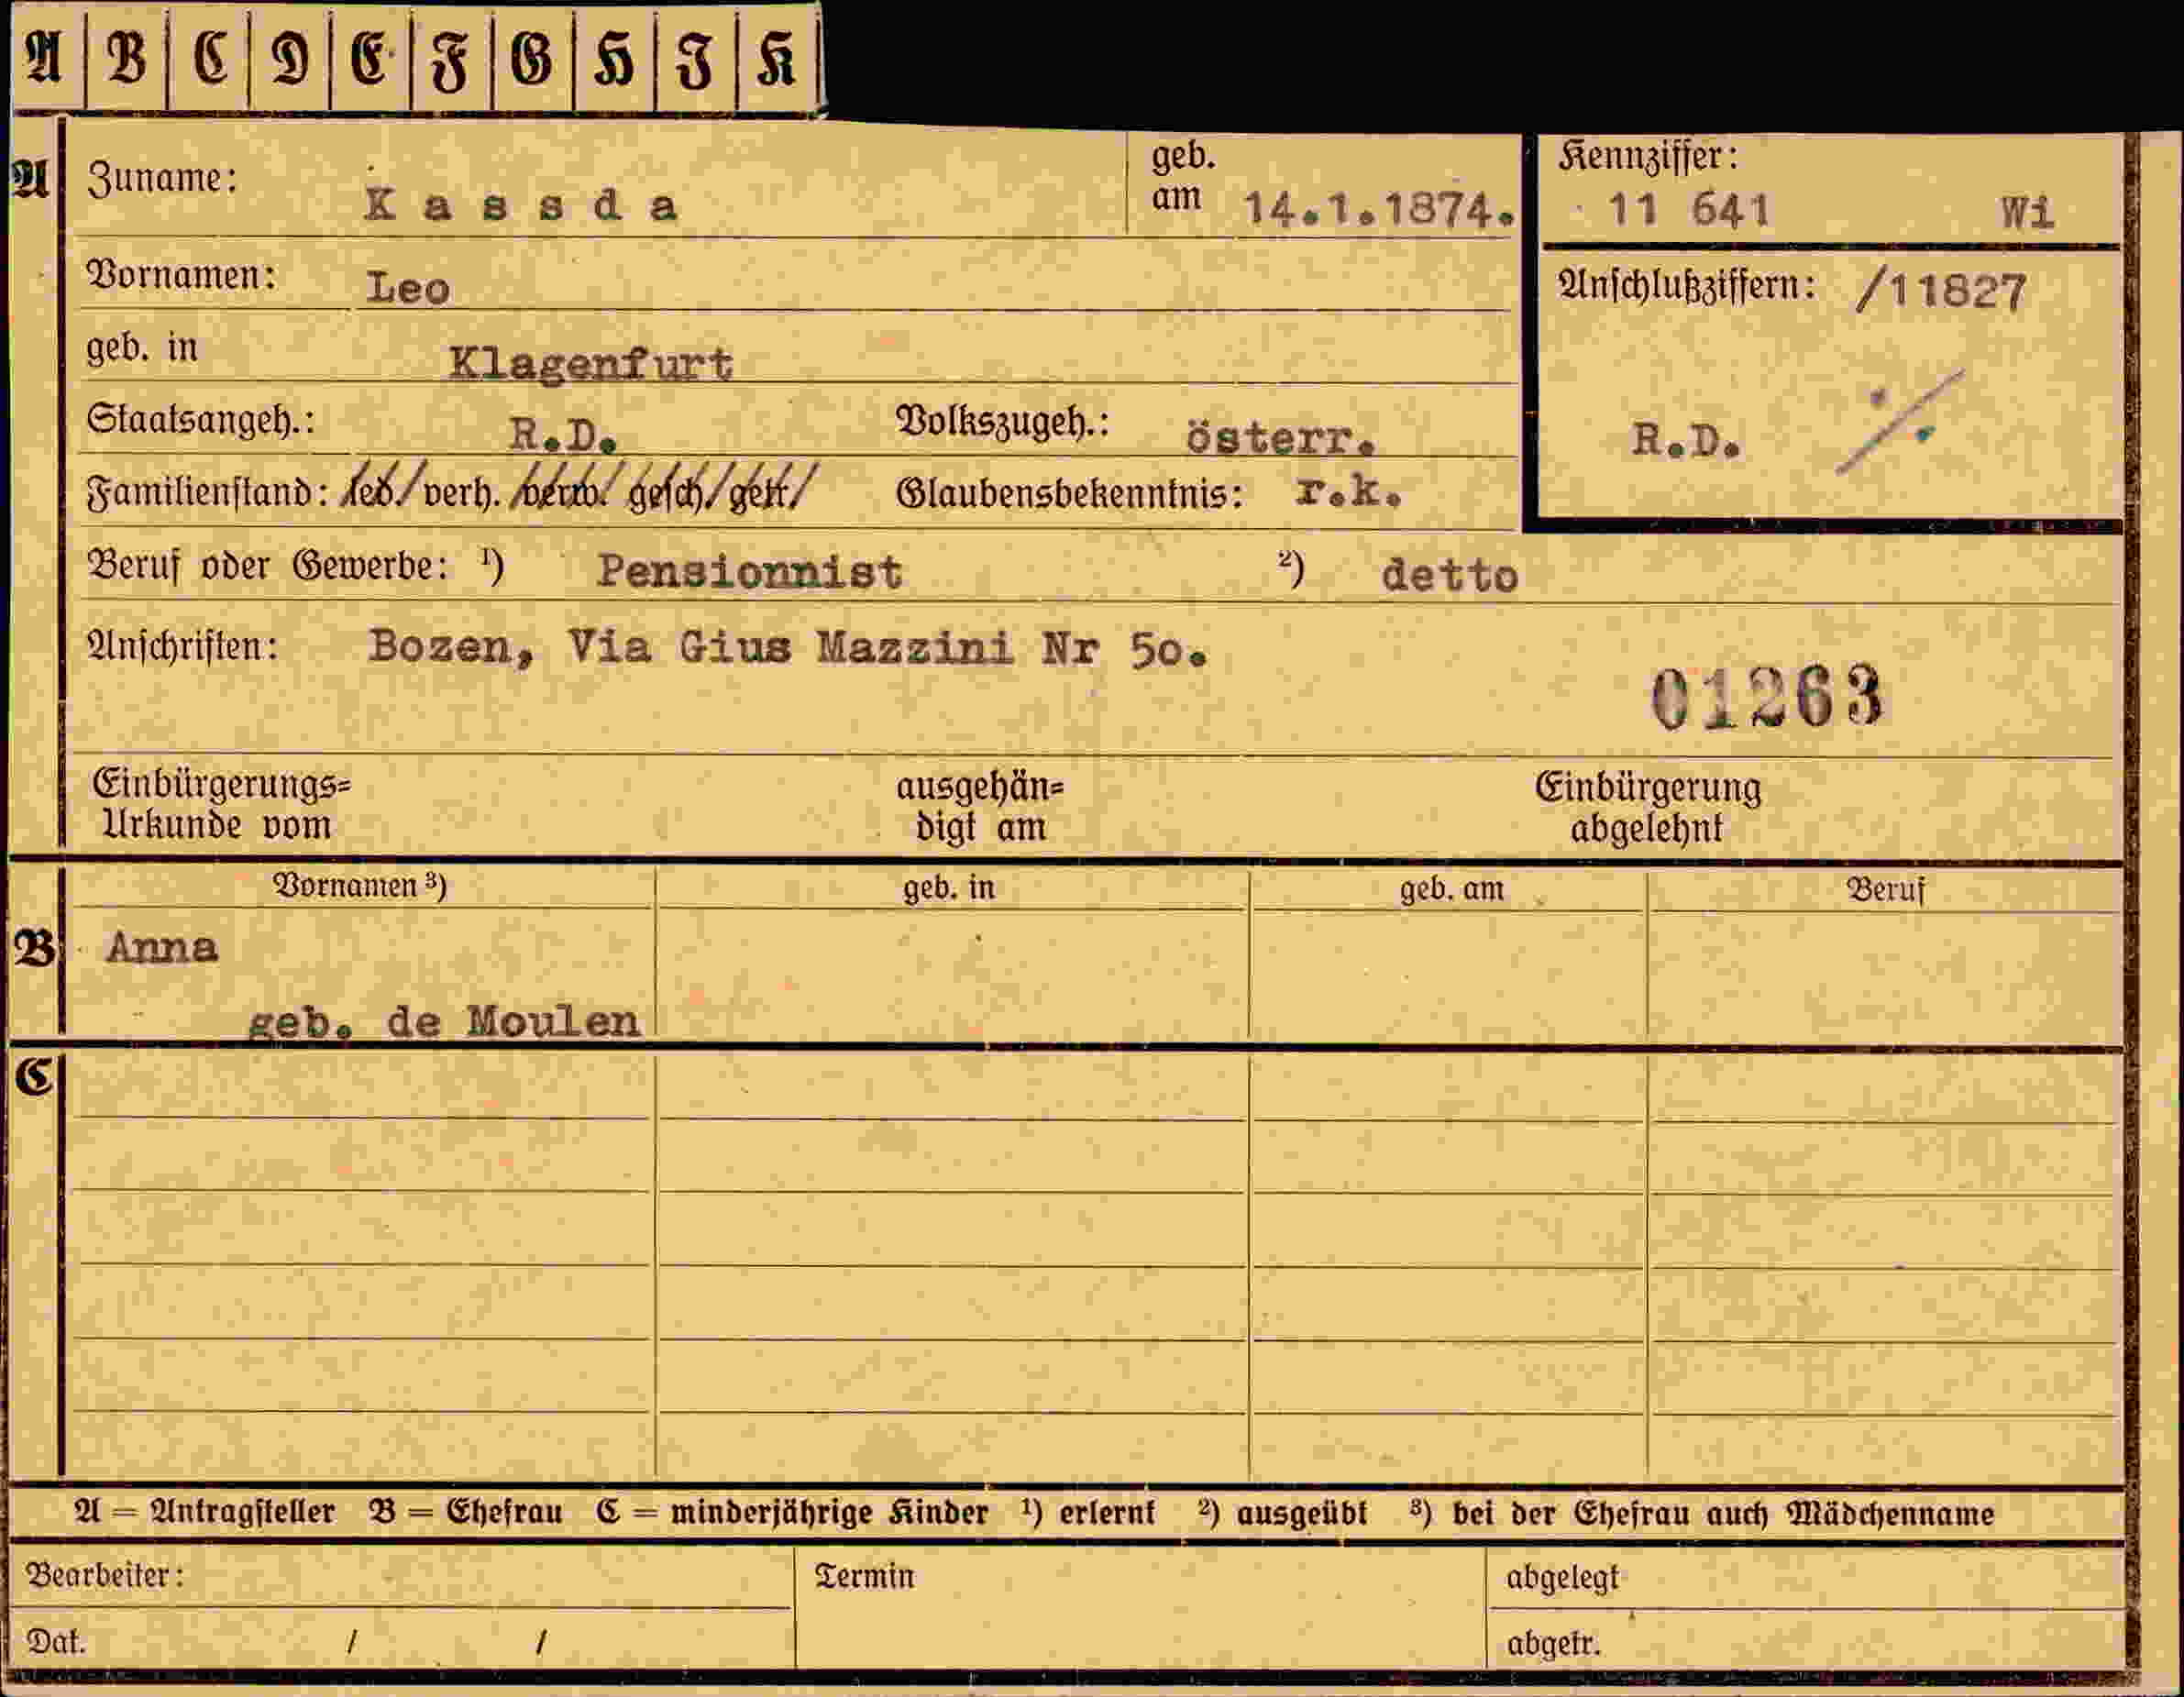 A B C D E F G H I K
A
Zuname: Kassda geb. am 14.1.1874.
Kennziffer: 11 641 Wi
Vornamen: Leo
Anschlußziffern: /11827
geb. in Klagenfurt
Staatsangeh.: R.D. Volkszugeh.: österr.
R.D. ·/.
Familienstand: led./verh./verw./gesch./getr./ Glaubensbekenntnis: r.k.
Beruf oder Gewerbe: ¹) Pensionnist ²) detto
Anschriften: Bozen, Via Gius Mazzini Nr 50.
01263
Einbürgerungs= ausgehän= Einbürgerung
Urkunde vom digt am abgelehnt
Vornamen ³) geb. in geb. am Beruf
B Anna
geb. de Moulen
C
A = Antragsteller B = Ehefrau C = minderjährige Kinder ¹) erlernt ²) ausgeübt ³) bei der Ehefrau auch Mädchenname
Bearbeiter: Termin abgelegt
Dat. / / abgetr.